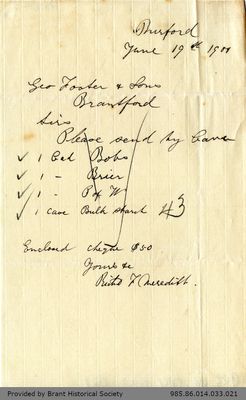 Burford
June 19th 1900
Geo Foster & Sons
Brantford
Sirs
Please send by Cavan
✓ 1 Cat Bobs
✓ 1 - Brier
✓ 1 - P of W
✓ 1 Case Bulk Starch #3
Enclosed Cheque $50
Yours &c
F Meredith.
Provided by Brant Historical Society
985.86.014.033.021